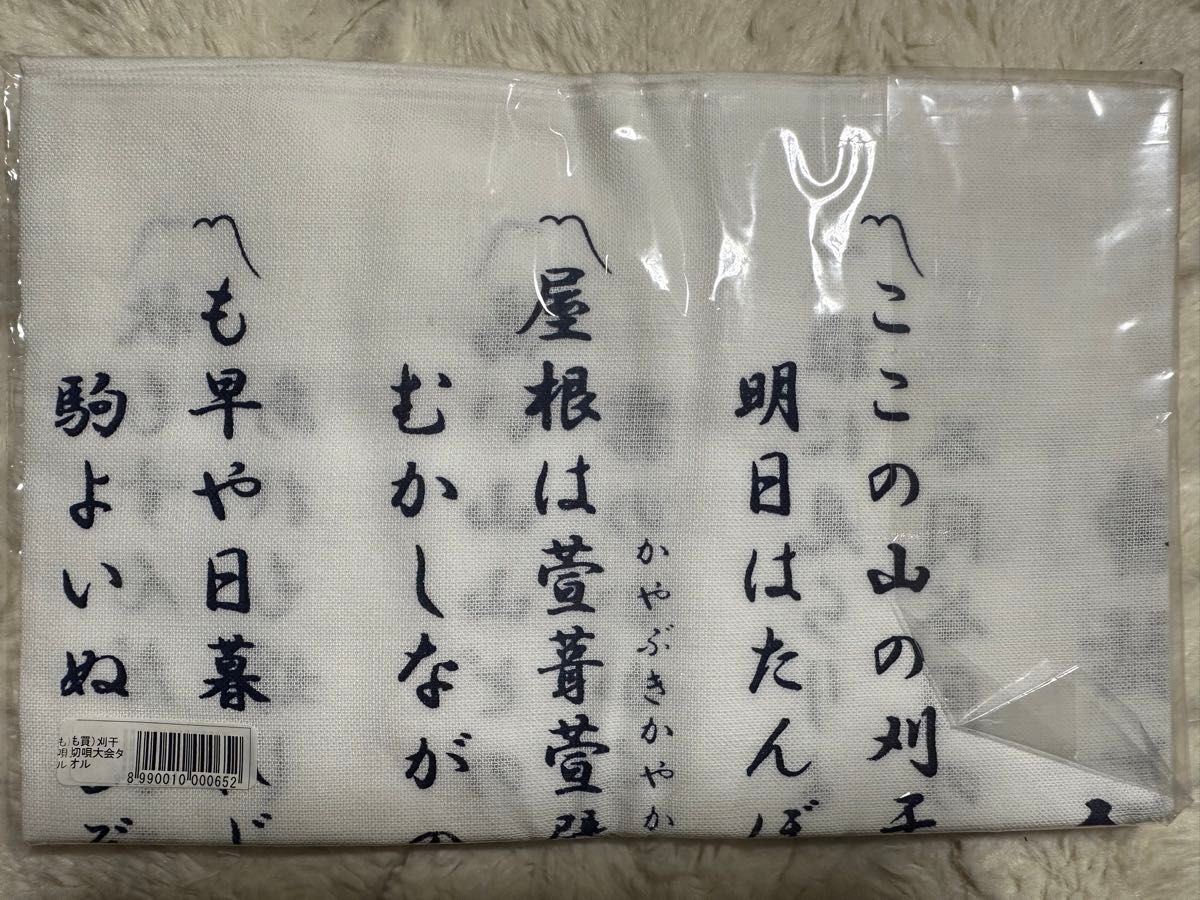 〽ここの山の刈干
明日はたんぼ
かやぶきかやか
屋根は萱葺萱壁
むかしながの
〽も早や日暮
駒よいぬ
も買)刈干
切唄大会タ
オル
8 990010 000652